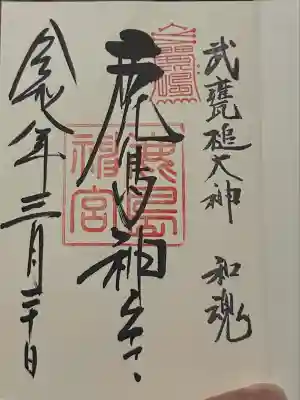 武甕槌大神 和魂
鹿島神宮
令和七年三月二十日
鹿島
神宮